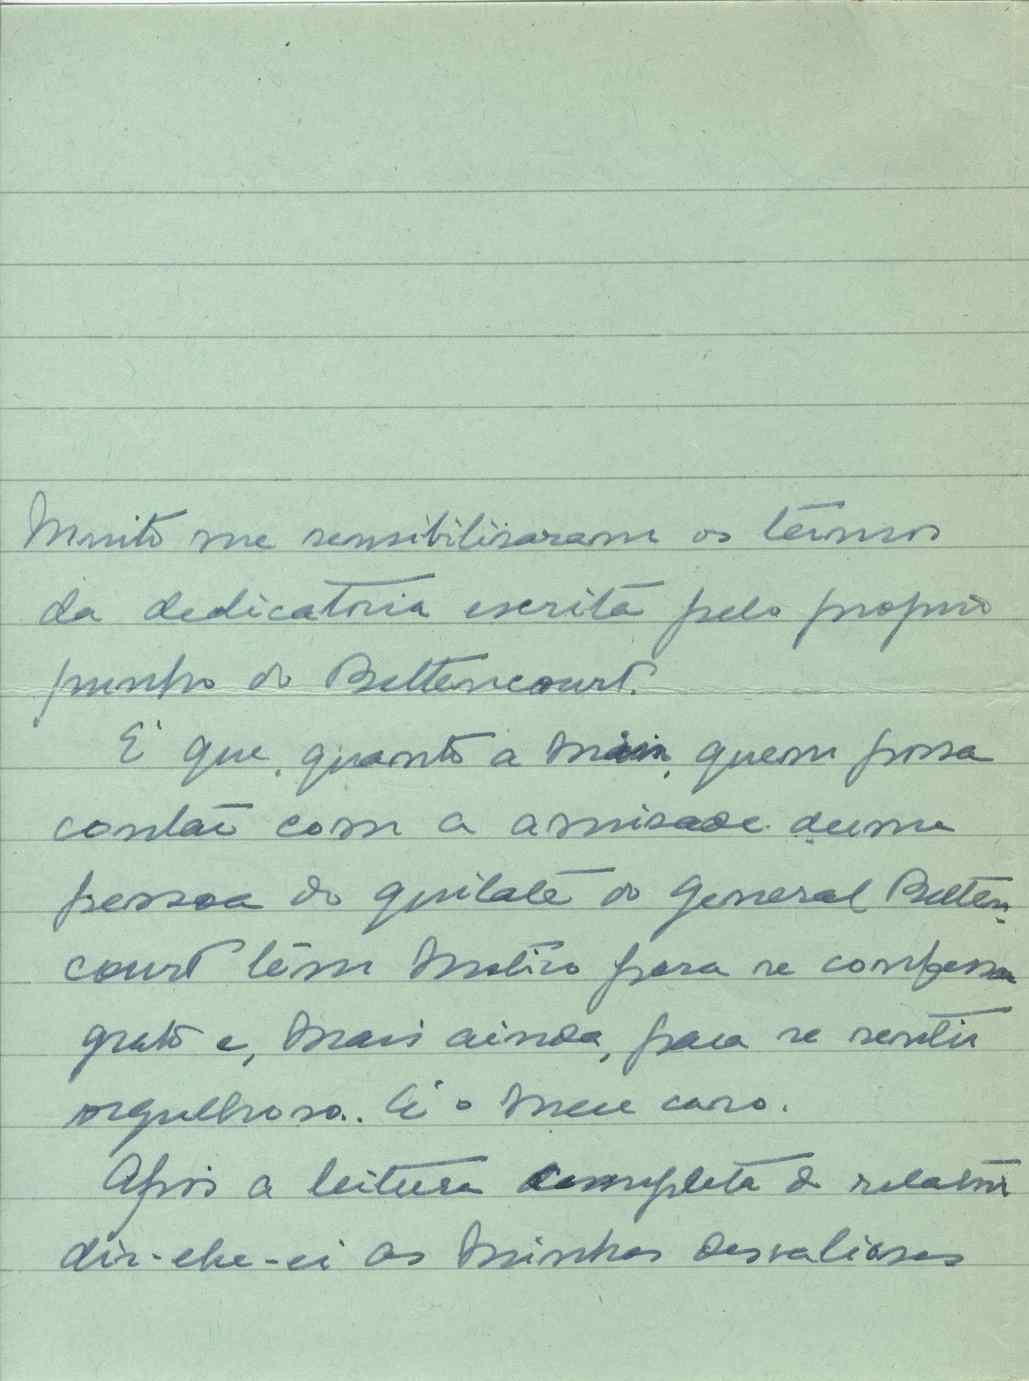 Muito me sensibilisaram os têrmos
da dedicatoria escrita pelo proprio
punho do Bettencourt.
E' que, quanto a mim, quem possa
contar com a amisade duma
pessoa do quilate do General Betten-
court têm motivo para se confessar
grato e, mais ainda, para se sentir
orgulhoso. E' o meu caso.
Após a leitura completa do relatório
dir-lhe-ei as minhas desvaliosas